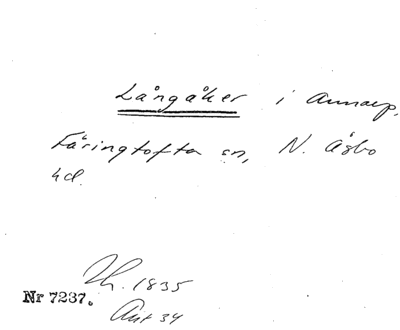 Långåker i Annarp,
Färingtofta sn, N. Åsbo
hd.
Th. 1835
Nr 7237.
Aut 34